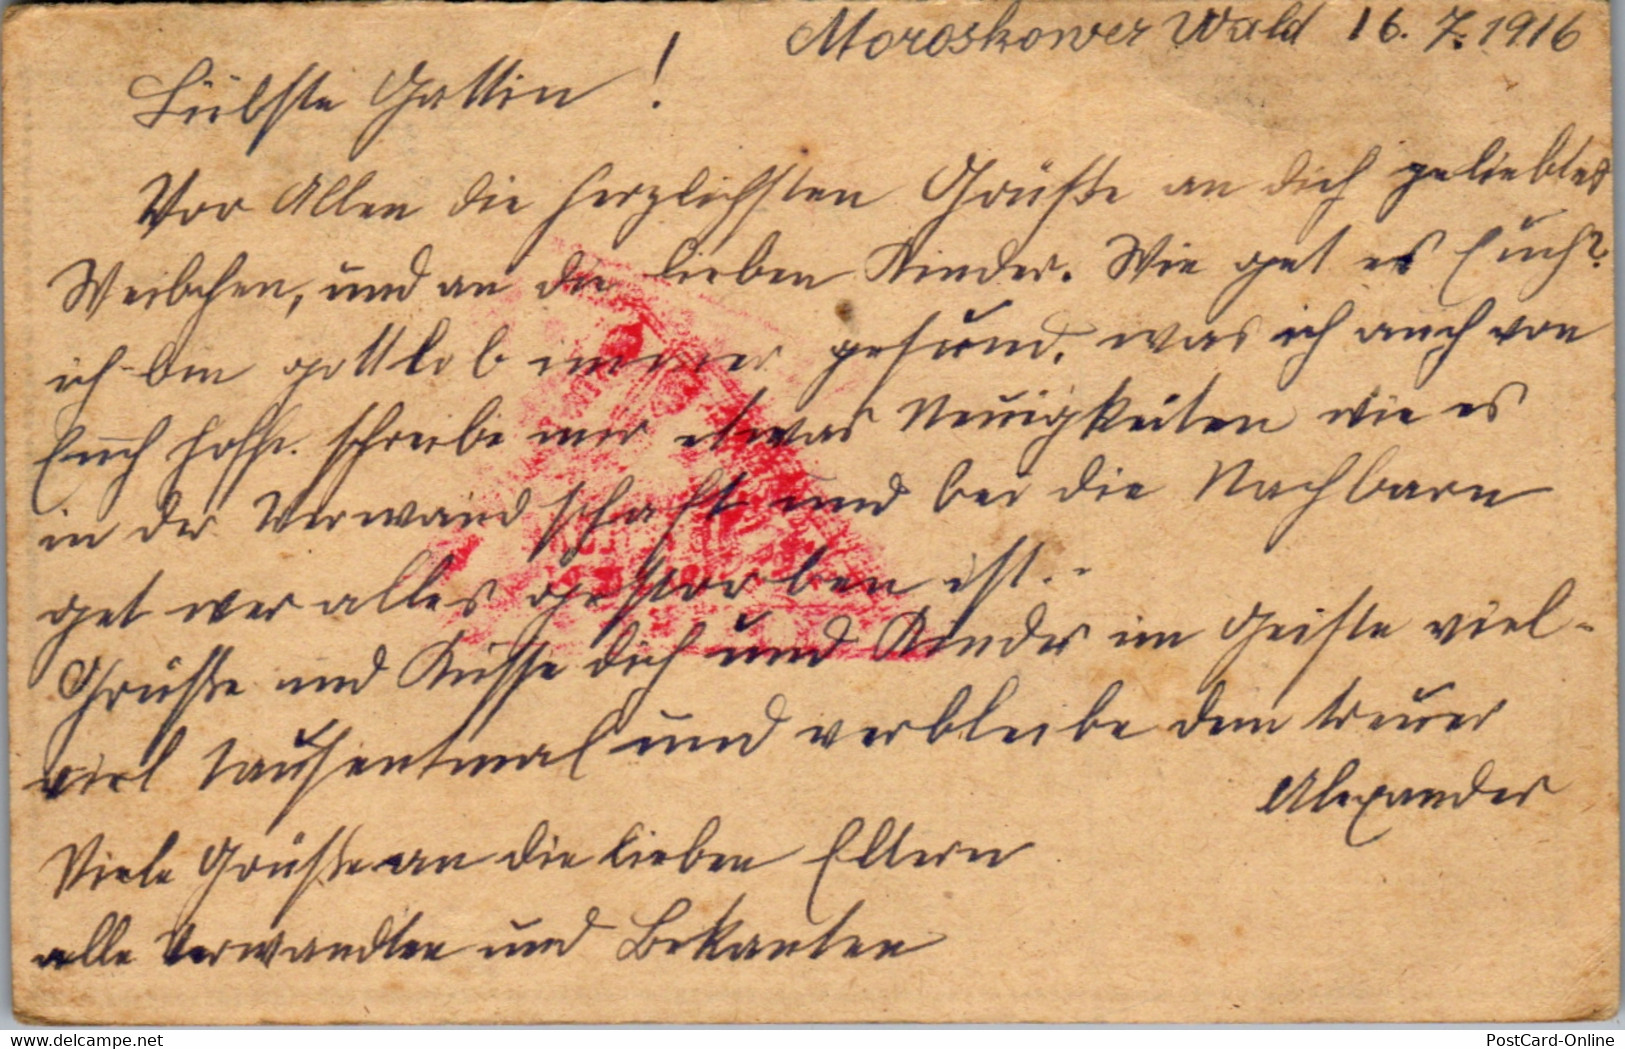 Moroskower Wald 16. 7. 1916
Liebste Gattin!
Vor Allen die herzlichsten Grüße an dich geliebtes
Weibchen, und an die lieben Kinder. Wie get es Euch?
ich bin gottlob immer gesund, was ich auch von
Euch hoffe. schreibe mir etwas Neuigkeiten wie es
in der Verwandschaft und bei die Nachbarn
get wer alles gestorben ist..
Grüße und Küsse dich und Kinder im Geiste viel-
viel tausentmal und verbleibe dein treuer
Alexander
Viele Grüße an die lieben Eltern
alle Verwandten und Bekanten
www.delcampe.net
PostCard-Online